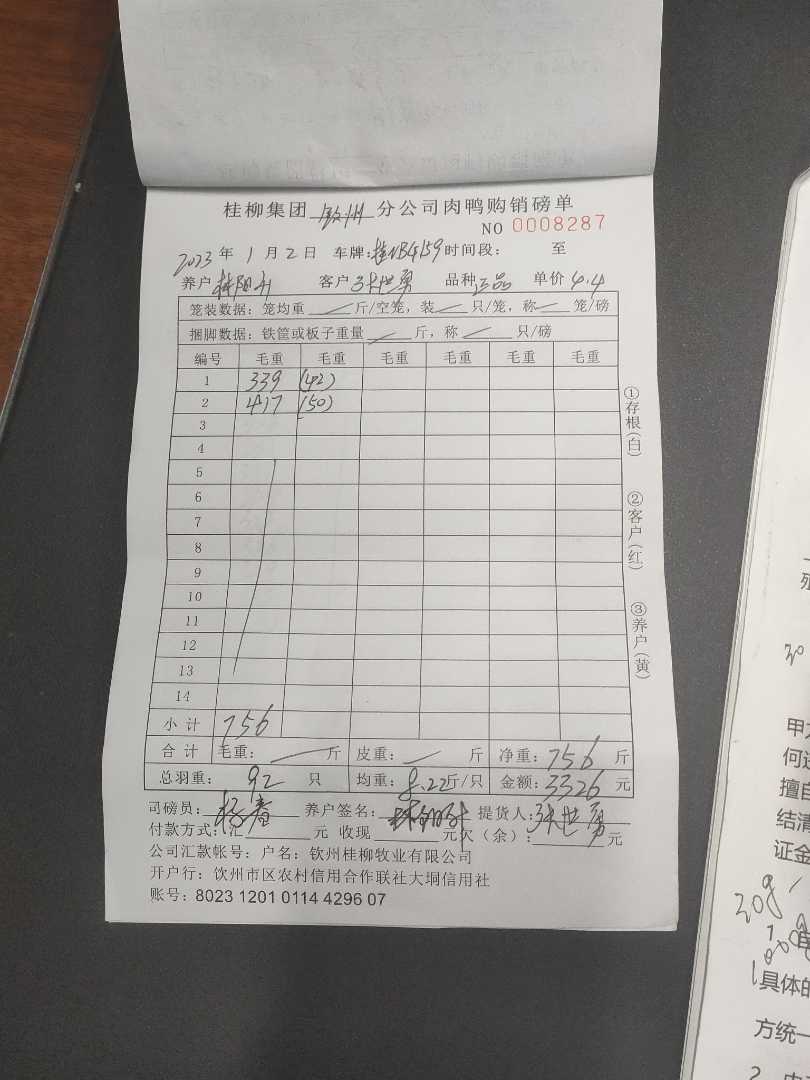 桂柳集团 钦州 分公司肉鸭购销磅单
NO 0008287
2023 年 1 月 2 日 车牌: 桂NB4159 时间段: 至
养户 客户 张世勇 品种 正品 单价 4.4
笼装数据: 笼均重 斤/空笼, 装 只/笼, 称 笼/磅
捆脚数据: 铁筐或板子重量 斤, 称 只/磅
编号 毛重 毛重 毛重 毛重 毛重 毛重
1 339 (42)
2 417 (50)
3
4
5
6
7
8
9
10
11
12
13
14
小计 756
合计 毛重: 斤 皮重: 斤 净重: 756 斤
总羽重: 92 只 均重: 8.22 斤/只 金额: 3326 元
司磅员: 养户签名: 提货人: 张世勇
付款方式: 汇 元 收现 元欠（余）: 元
公司汇款帐号: 户名: 钦州桂柳牧业有限公司
开户行: 饮州市区农村信用合作联社大垌信用社
账号: 8023 1201 0114 4296 07
①存根(白)
②客户(红)
③养户(黄)
30
何
擅自
结清
证金
30g
具体的
方统一
2